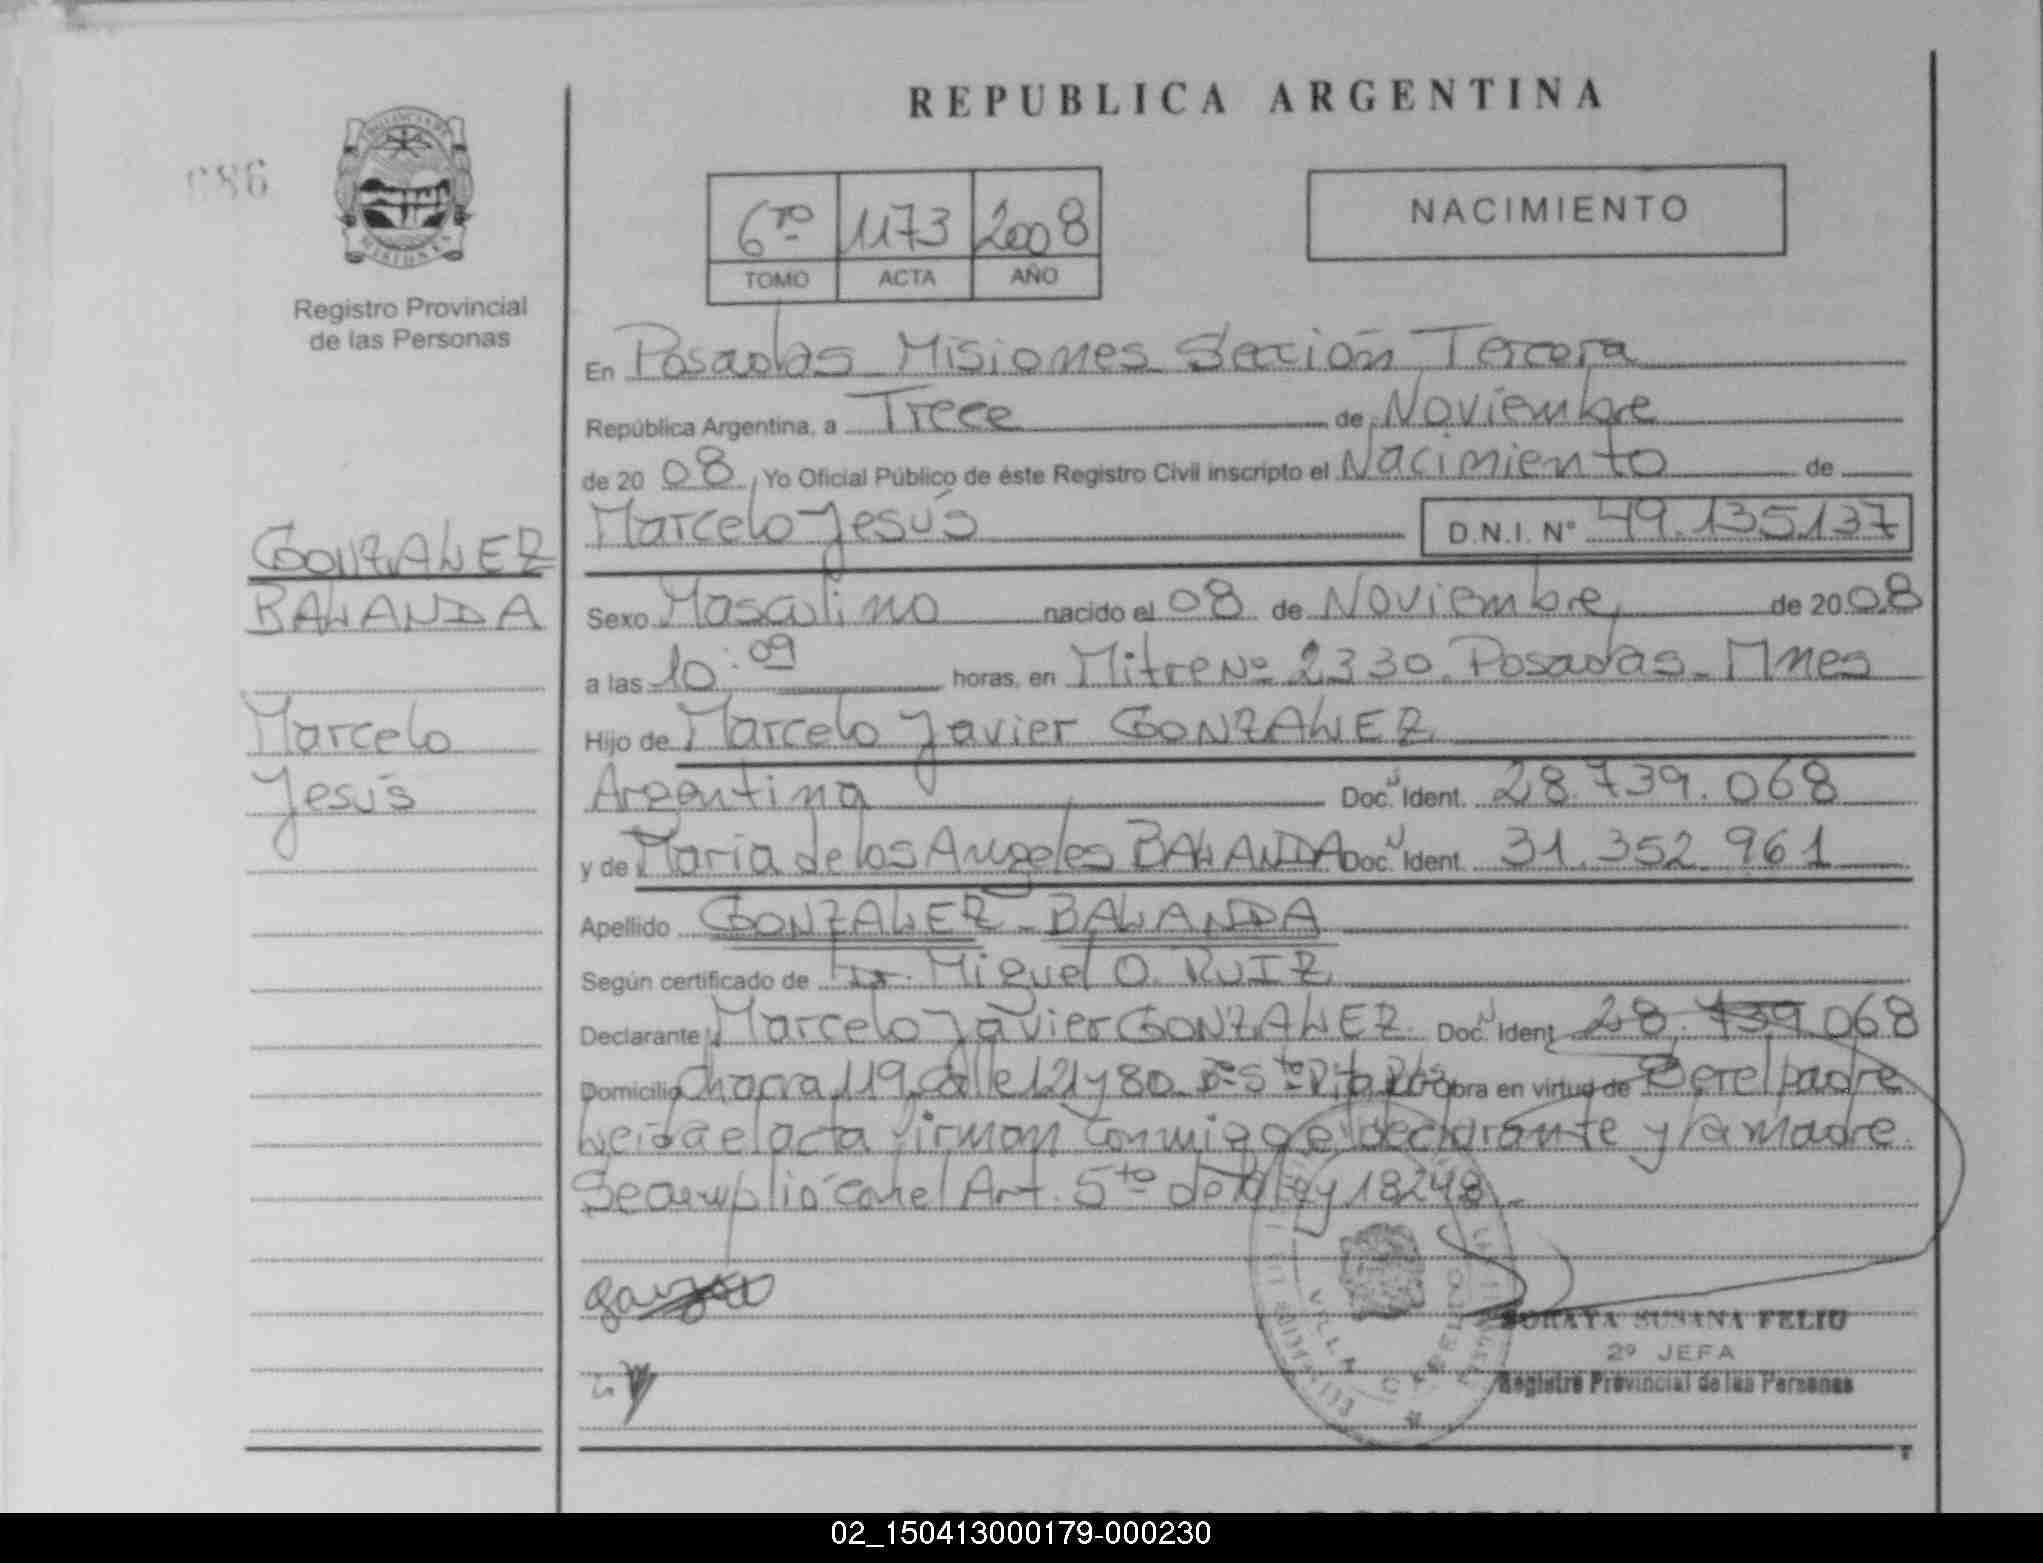 REPUBLICA ARGENTINA
086
PROVINCIA DE
MISIONES
Registro Provincial
de las Personas
6ro 1173 2008
TOMO ACTA AÑO
NACIMIENTO
En Posadas Misiones Sección Tercera
República Argentina, a Trece de Noviembre
de 2008, Yo Oficial Público de éste Registro Civil inscripto el Nacimiento de
Marcelo Jesús D.N.I. Nº 49.135.137
GONZALEZ
BALANDA
Marcelo
Jesús
Sexo Masculino nacido el 08 de Noviembre de 2008
a las 10:09 horas, en Mitre Nº 2330. Posadas - Mnes
Hijo de Marcelo Javier GONZALEZ
Argentina Doc. Ident. 28.739.068
y de Maria de los Angeles BALANDA Doc. Ident. 31.352.961
Apellido GONZALEZ - BALANDA
Según certificado de Dr. Miguel O. RUIZ
Declarante Marcelo Javier GONZALEZ Doc. Ident. 28.739.068
Domicilio Chacra 119, Calle 121 y 80 Bº Sta Rita Pdas obra en virtud de Ser el padre
Leida el acta firman conmigo el declarante y la madre
Se cumplió con el Art. 5to de la Ley 18248.-
VILLA CABELLO
SORAYA SUSANA FELIU
2º JEFA
Registro Provincial de las Personas
02_150413000179-000230